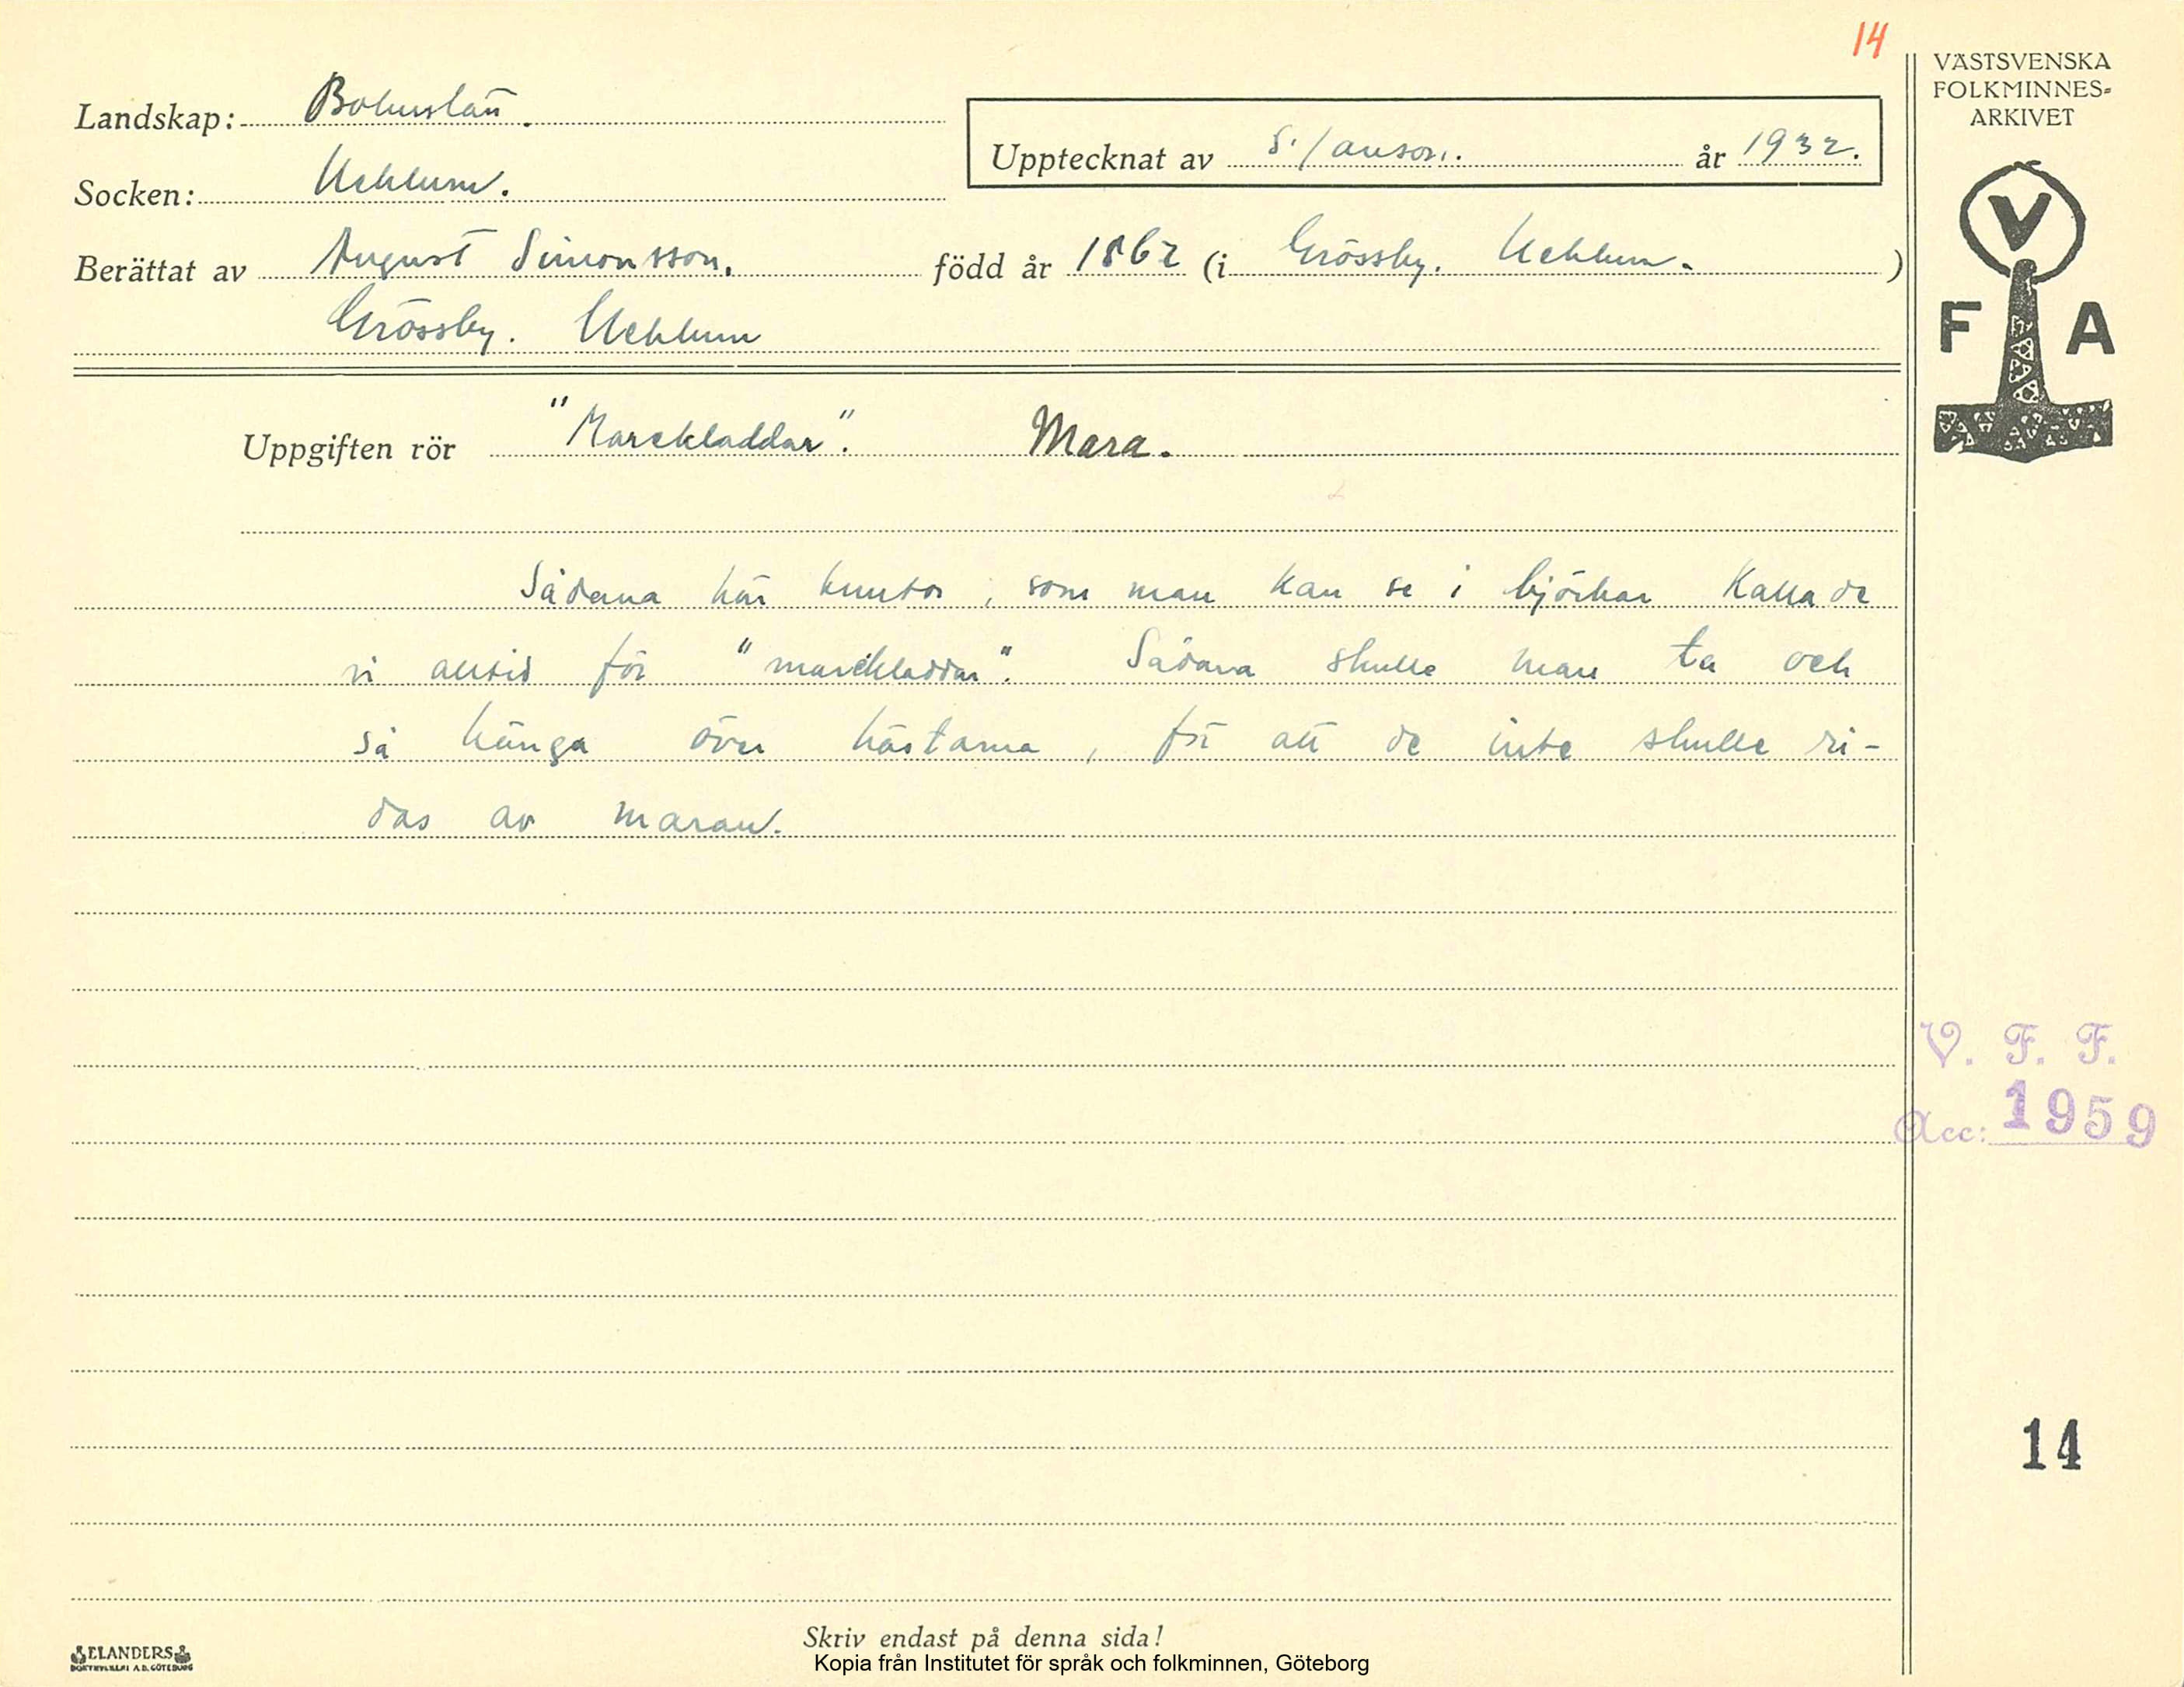 14
Landskap: Bohuslän.
Socken: Ucklum.
Upptecknat av S. Janson. år 1932.
Berättat av August Simonsson. född år 1862 (i Grössby. Ucklum. )
Grössby. Ucklum
Uppgiften rör "Marekladdar". Mara.
Sådana här knutor, som man kan se i björkar kallade
vi alltid för "marekladdar". Sådana skulle man ta och
så hänga över hästarna, för att de inte skulle ri-
das av maran.
VÄSTSVENSKA
FOLKMINNES=
ARKIVET
V
F A
V. F. F.
Acc: 1959
14
Skriv endast på denna sida!
ELANDERS
BOKTRYCKERI A.B. GÖTEBORG
Kopia från Institutet för språk och folkminnen, Göteborg